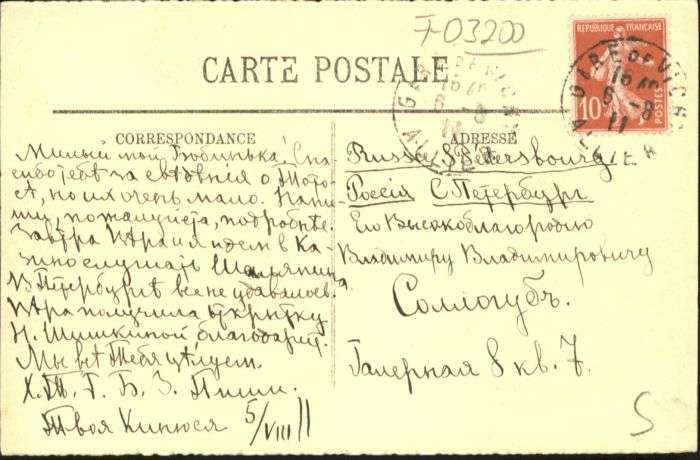 7-03200
CARTE POSTALE
REPUBLIQUE FRANÇAISE
10
POSTES
GARE DE VICHY
6 -8
11
ALLIER
CORRESPONDANCE
Милый мой Бобинька! Спа-
сибо тебѣ за свѣдѣнія о Тото-
, но их очень мало. Напи-
ши, пожалуйста, подробнѣе.
Завтра Ира и я идем в Ка-
зино слушать Шаляпина
В Петербургѣ все не удавалось.
Ира получила открытку
Н. Шишкиной благодарит.
Мы всѣ Тебя цѣлуем.
Х. Т. Г. Б. З. Пиши.
Твоя Кипюся 5/VIII 11
ADRESSE
Russie S. Pétersbourg
Россія С. Петербург
Его Высокоблагородію
Владимиру Владимировичу
Соллогубъ.
Галерная 8 кв. 7.
S